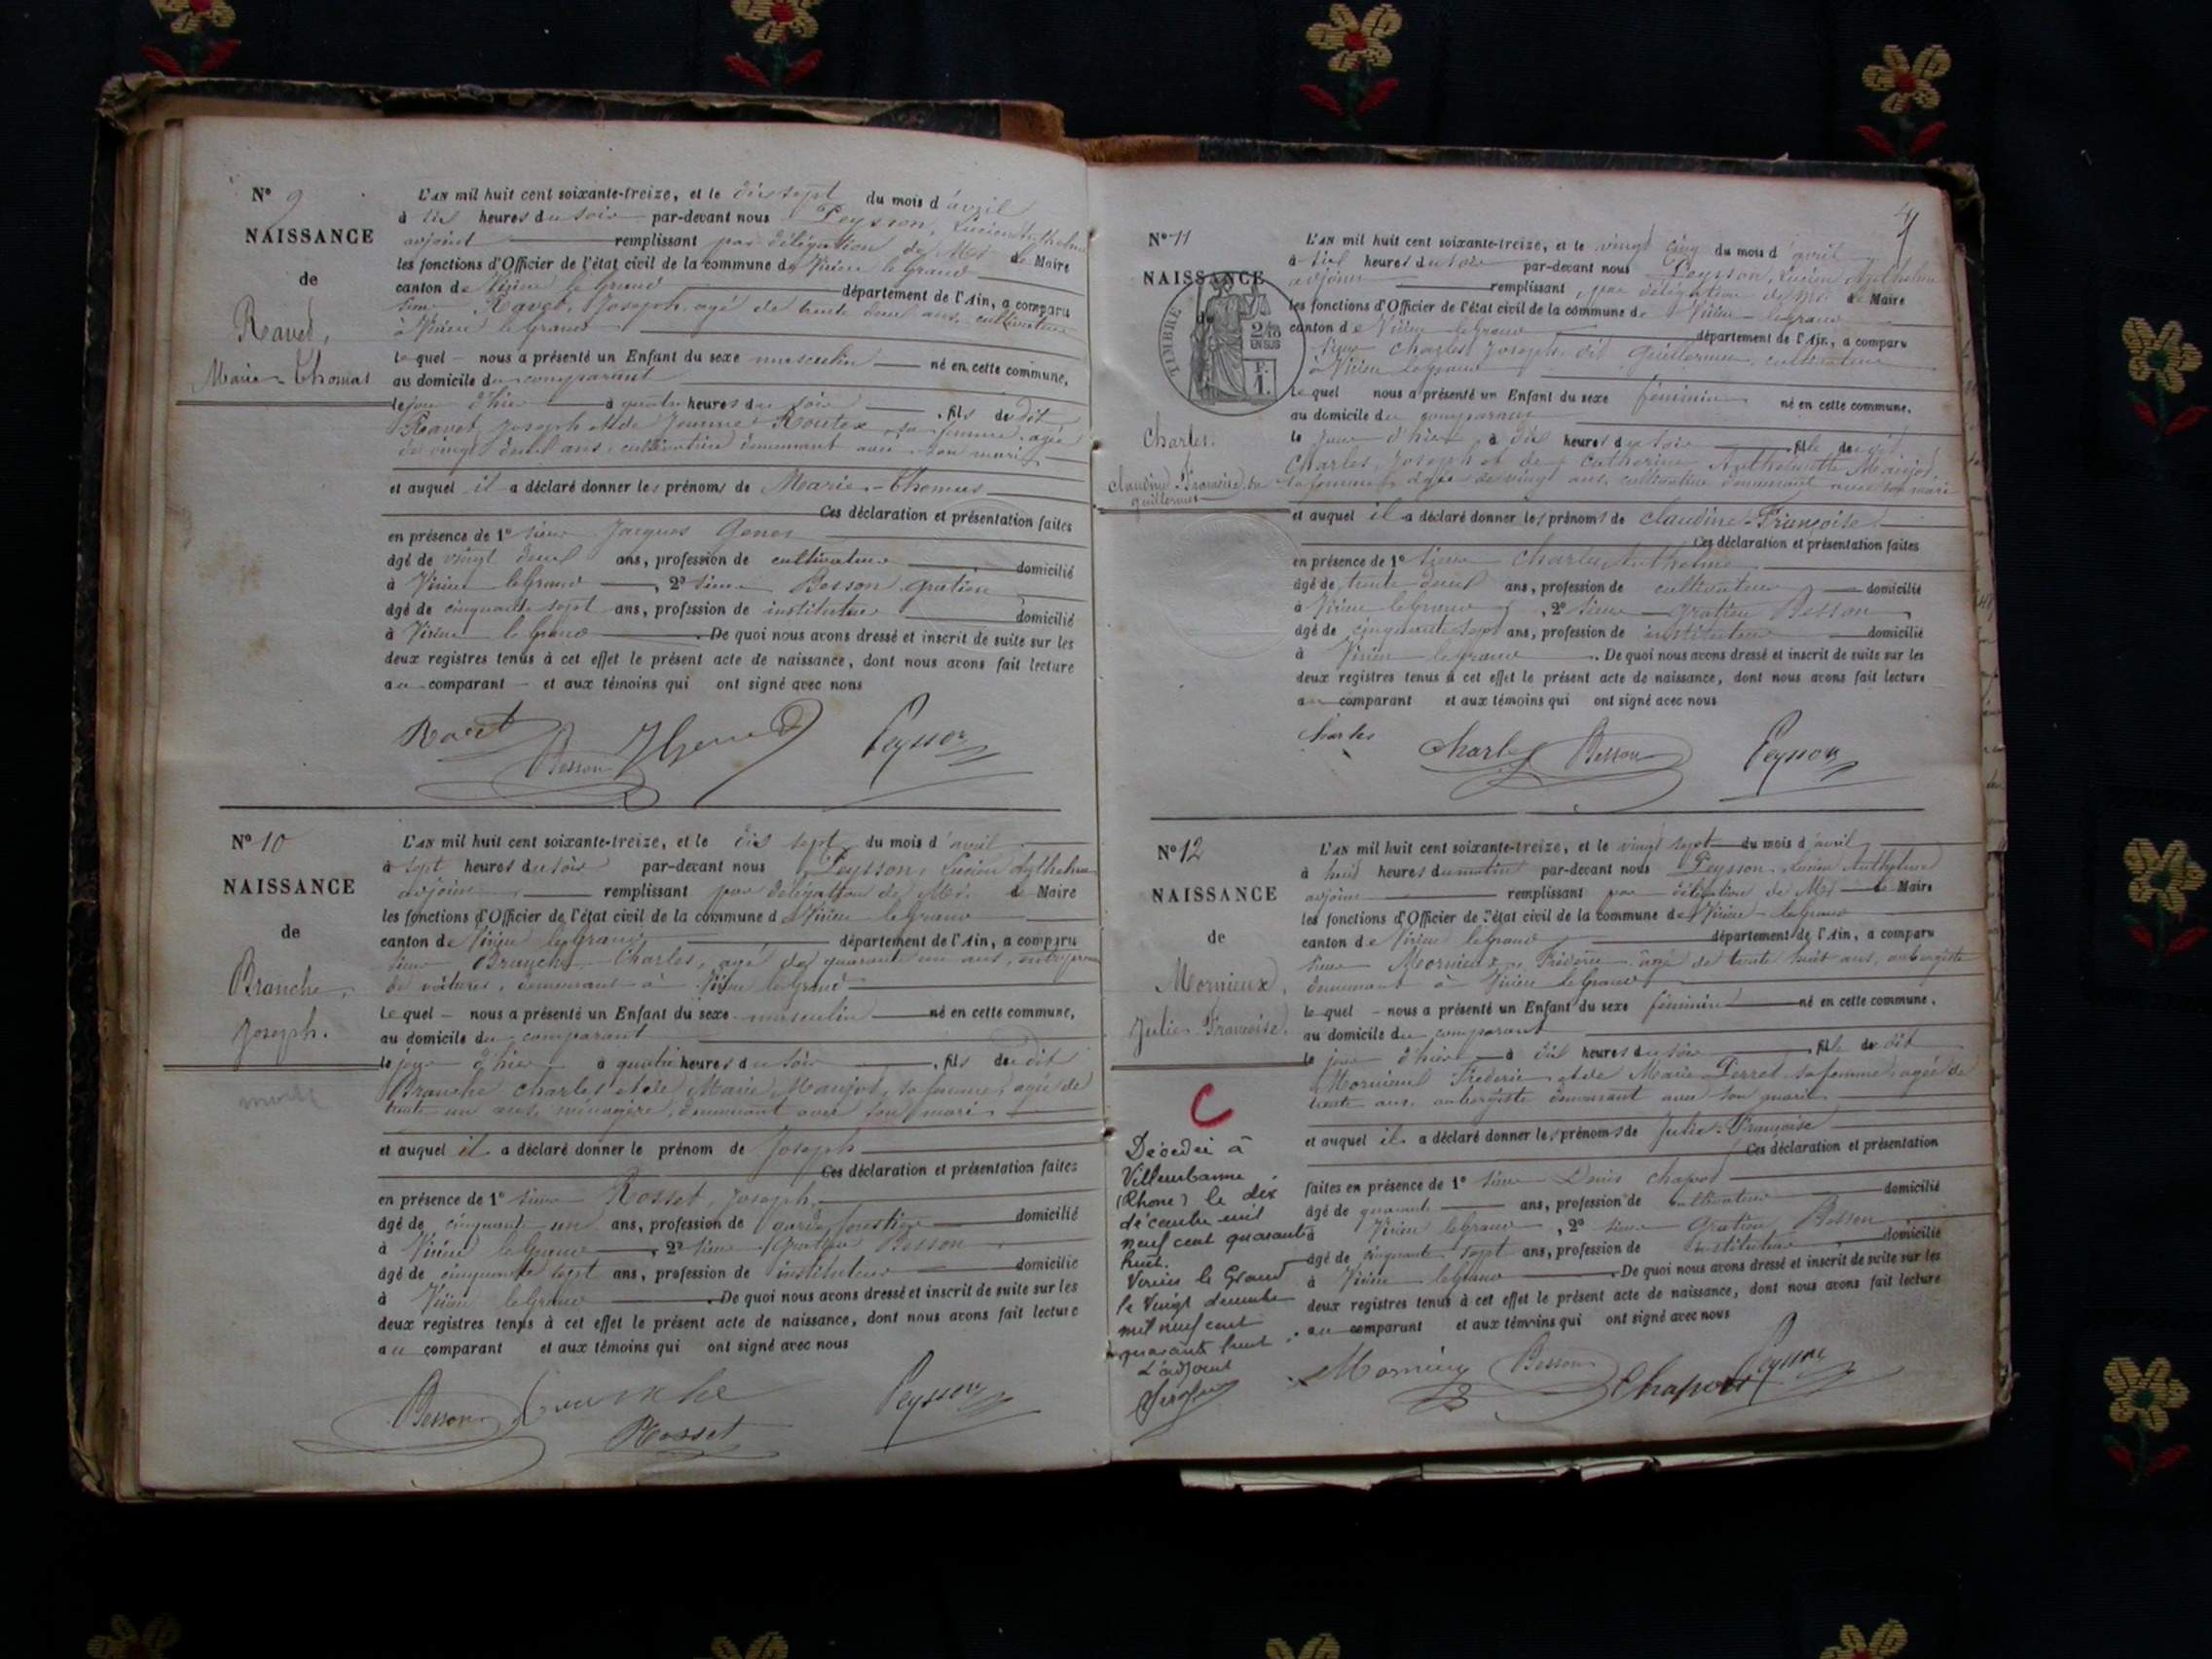 N° 9
NAISSANCE
de
Ravet,
Marie-Thomas
L'AN mil huit cent soixante-treize, et le dix sept du mois d'avril
à six heures du soir par-devant nous Peysson, Lucien Anthelme
adjoint remplissant par délégation de Mr le Maire
les fonctions d'Officier de l'état civil de la commune de Virieu le Grand
canton de Virieu le Grand département de l'Ain, a comparu
sieur Ravet, Joseph, agé de trente deux ans, cultivateur
à Virieu le Grand
lequel nous a présenté un Enfant du sexe masculin né en cette commune,
au domicile du comparant
le jour d'hier à quatre heures du soir, fils du dit
Ravet Joseph et de Jeanne Routex, sa femme, agée
de vingt deux ans, cultivatrice demeurant avec son mari
et auquel il a déclaré donner les prénoms de Marie-Thomas
Ces déclaration et présentation faites
en présence de 1° sieur Jacques
âgé de vingt deux ans, profession de cultivateur domicilié
à Virieu le Grand, 2° sieur Besson Gratien
âgé de cinquante sept ans, profession de instituteur domicilié
à Virieu le Grand. De quoi nous avons dressé et inscrit de suite sur les
deux registres tenus à cet effet le présent acte de naissance, dont nous avons fait lecture
au comparant et aux témoins qui ont signé avec nous
Ravet Besson Peysson
N° 10
NAISSANCE
de
Branche,
Joseph.
L'AN mil huit cent soixante-treize, et le dix sept du mois d'avril
à sept heures du soir par-devant nous Peysson, Lucien Anthelme
adjoint remplissant par délégation de Mr. le Maire
les fonctions d'Officier de l'état civil de la commune de Virieu le Grand
canton de Virieu le Grand département de l'Ain, a comparu
sieur Branche Charles, agé de quarante un ans, entrepreneur
de voitures, demeurant à Virieu le Grand
lequel nous a présenté un Enfant du sexe masculin né en cette commune,
au domicile du comparant
le jour d'hier à quatre heures du soir, fils du dit
Branche Charles et de Marie Maujot, sa femme, agée de
trente un ans, ménagère, demeurant avec son mari
et auquel il a déclaré donner le prénom de Joseph
Ces déclaration et présentation faites
en présence de 1° sieur Rosset, Joseph,
âgé de cinquante un ans, profession de garde forestier domicilié
à Virieu le Grand, 2° sieur Gratien Besson
âgé de cinquante sept ans, profession de instituteur domicilié
à Virieu le Grand. De quoi nous avons dressé et inscrit de suite sur les
deux registres tenus à cet effet le présent acte de naissance, dont nous avons fait lecture
au comparant et aux témoins qui ont signé avec nous
Besson Branche Peysson
Rosset
N° 11
NAISSANCE
de
TIMBRE
2/10
EN SUS
F.
1.
Charles.
Claudine Françoise dit
Guillermier
L'AN mil huit cent soixante-treize, et le vingt cinq du mois d'avril
à six heures du soir par-devant nous Peysson, Lucien Anthelme
adjoint remplissant par délégation de Mr. le Maire
les fonctions d'Officier de l'état civil de la commune de Virieu-le Grand
canton de Virieu le Grand département de l'Ain, a comparu
sieur Charles Joseph dit Guillermier cultivateur
à Virieu le grand
lequel nous a présenté un Enfant du sexe féminin né en cette commune.
au domicile du comparant
le jour d'hier à dix heures du soir fille du dit
Charles, Joseph et de Catherine Anthelmette Maujot
sa femme, agée de vingt ans, cultivatrice demeurant avec son mari
et auquel il a déclaré donner les prénoms de Claudine-Françoise
Ces déclaration et présentation faites
en présence de 1° sieur Charles Anthelme
âgé de trente deux ans, profession de cultivateur domicilié
à Virieu le Grand, 2° sieur Gratien Besson
âgé de cinquante sept ans, profession de instituteur domicilié
à Virieu le Grand. De quoi nous avons dressé et inscrit de suite sur les
deux registres tenus à cet effet le présent acte de naissance, dont nous avons fait lecture
au comparant et aux témoins qui ont signé avec nous
Charles Charles Besson Peysson
N° 12
NAISSANCE
de
Mornieux,
Julie-Françoise.
C
Décédée à
Villeurbanne
(Rhone) le dix
décembre mil
neuf cent quarante
huit.
Virieu le Grand
le vingt decembre
mil neuf cent
quarante huit
L'adjoint
L'AN mil huit cent soixante-treize, et le vingt sept du mois d'avril
à huit heures du matin par-devant nous Peysson, Lucien Anthelme
adjoint remplissant par délégation de Mr le Maire
les fonctions d'Officier de l'état civil de la commune de Virieu-le Grand
canton de Virieu le Grand département de l'Ain, a comparu
sieur Mornieux, Fréderic agé de trente huit ans, aubergiste
demeurant à Virieu le Grand
lequel nous a présenté un Enfant du sexe féminin né en cette commune.
au domicile du comparant
le jour d'hier à dix heures du soir, fille du dit
Mornieux Frederic et de Marie Perret sa femme, agée de
trente ans, aubergiste demeurant avec son mari
et auquel il a déclaré donner les prénoms de Julie-Françoise
Ces déclaration et présentation
faites en présence de 1° sieur Denis Chapot
âgé de quarante ans, profession de cultivateur domicilié
à Virieu le Grand, 2° sieur Gratien Besson
âgé de cinquante sept ans, profession de instituteur domicilié
à Virieu le Grand. De quoi nous avons dressé et inscrit de suite sur les
deux registres tenus à cet effet le présent acte de naissance, dont nous avons fait lecture
au comparant et aux témoins qui ont signé avec nous
Besson Chapot Peysson